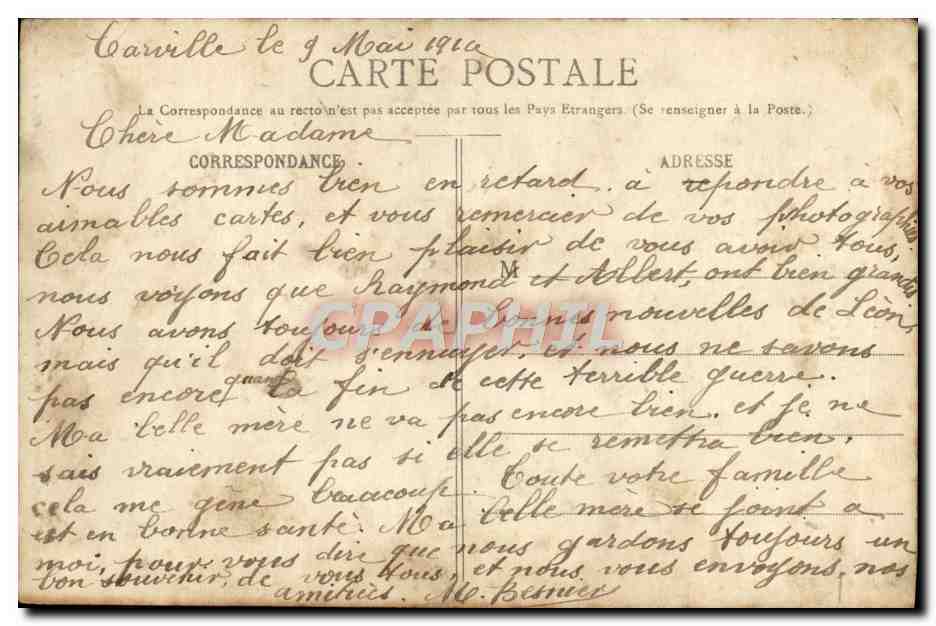 Carville le 9 Mai 191
CARTE POSTALE
La Correspondance au recto n'est pas acceptée par tous les Pays Etrangers. (Se renseigner à la Poste.)
Chère Madame
CORRESPONDANCE
ADRESSE
Nous sommes bien en retard à repondre à vos
aimables cartes, et vous remercier de vos photographies,
Cela nous fait bien plaisir de vous avoir tous,
M
nous voyons que Raymond et Albert, ont bien grandis
Nous avons toujours de bonnes nouvelles de Lèon,
CPAPHIL
mais qu'il doit s'ennuyer, et nous ne savons
pas encore quand la fin de cette terrible guerre.
Ma belle mère ne va pas encore bien, et je ne
sais vraiement pas si elle se remettra bien,
cela me gêne beaucoup. Toute votre famille
est en bonne santè. Ma belle mère se joint a
moi, pour vous dire que nous gardons toujours un
bon souvenir de vous tous, et nous vous envoyons, nos
amitiés. M. Besnier